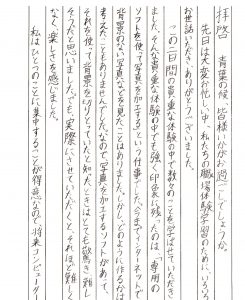 拝啓 青葉の候、皆様いかがお過ごしでしょうか。
先日は大変お忙しい中、私たちの職場体験学習のために、いろいろ
お世話いただき、ありがとうございました。
この二日間の貴重な体験の中で、数々のことを学ばせていただき
ました。そんな貴重な体験の中でも強く印象に残ったのは、「専用の
ソフトを使って写真を加工する」という仕事でした。今までインターネットで
背景のない写真などを見たことはありましたが、どのように作るかは
考えたこともありませんでした。なので写真を加工するソフトがあって、
それを使って背景を切りとっていたと知ったときはとても驚き、難し
そうだと思いました。でも、実際にさせていただくと、それほど難しく
なく、楽しさを感じました。
私はひとつのことに集中することが得意なので、将来コンピューター